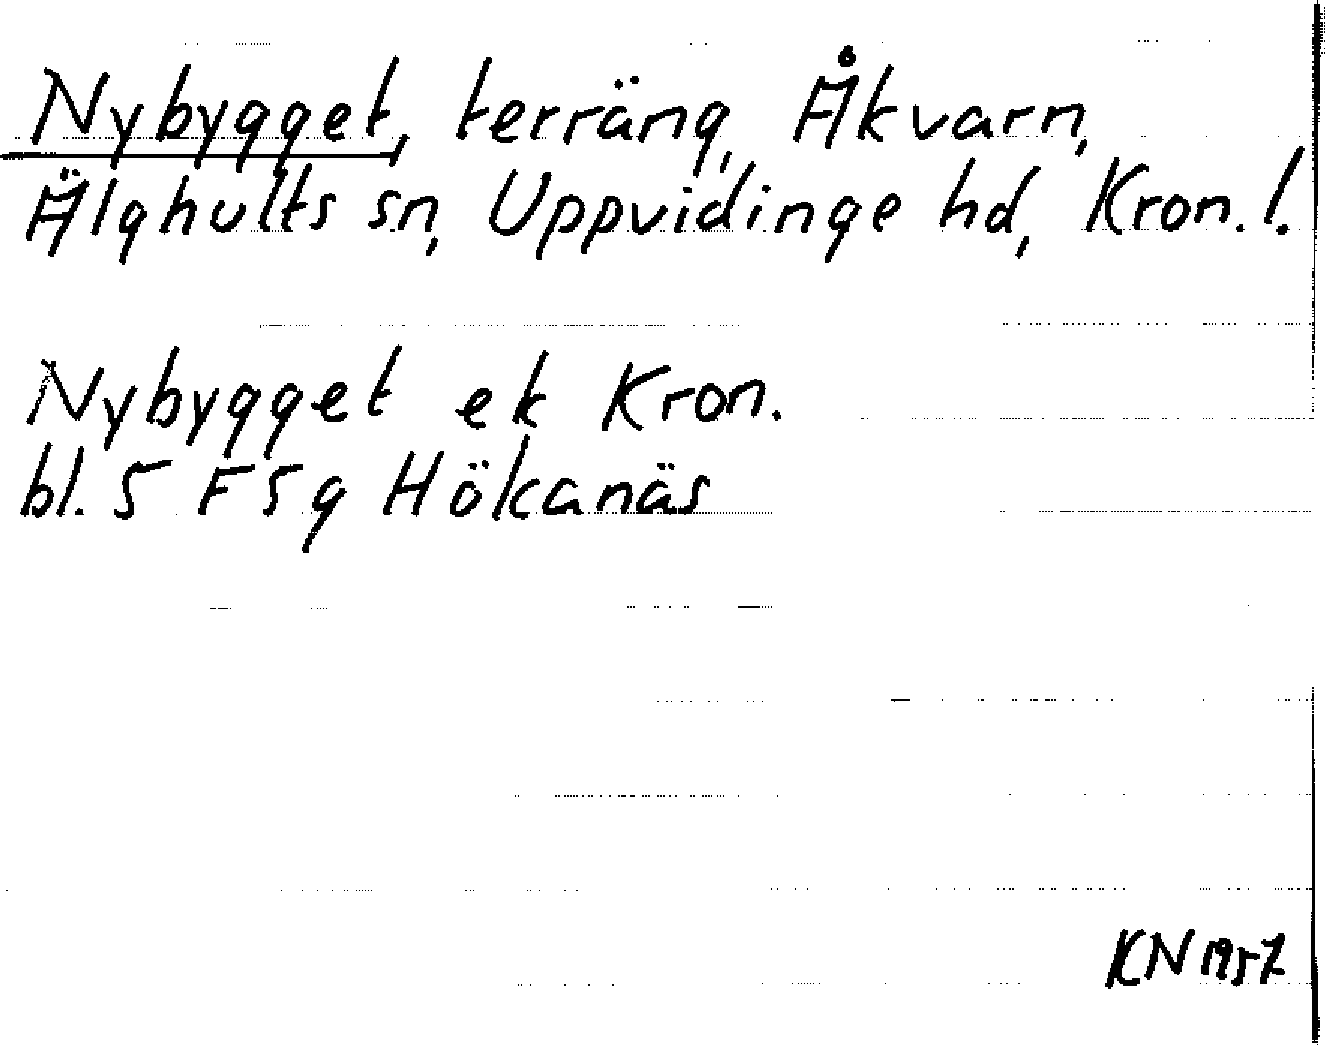 Nybygget, terräng, Åkvarn,
Älghults sn, Uppvidinge hd, Kron. l.
Nybygget ek Kron.
bl. 5 F 5 g Hökanäs
KN 1957